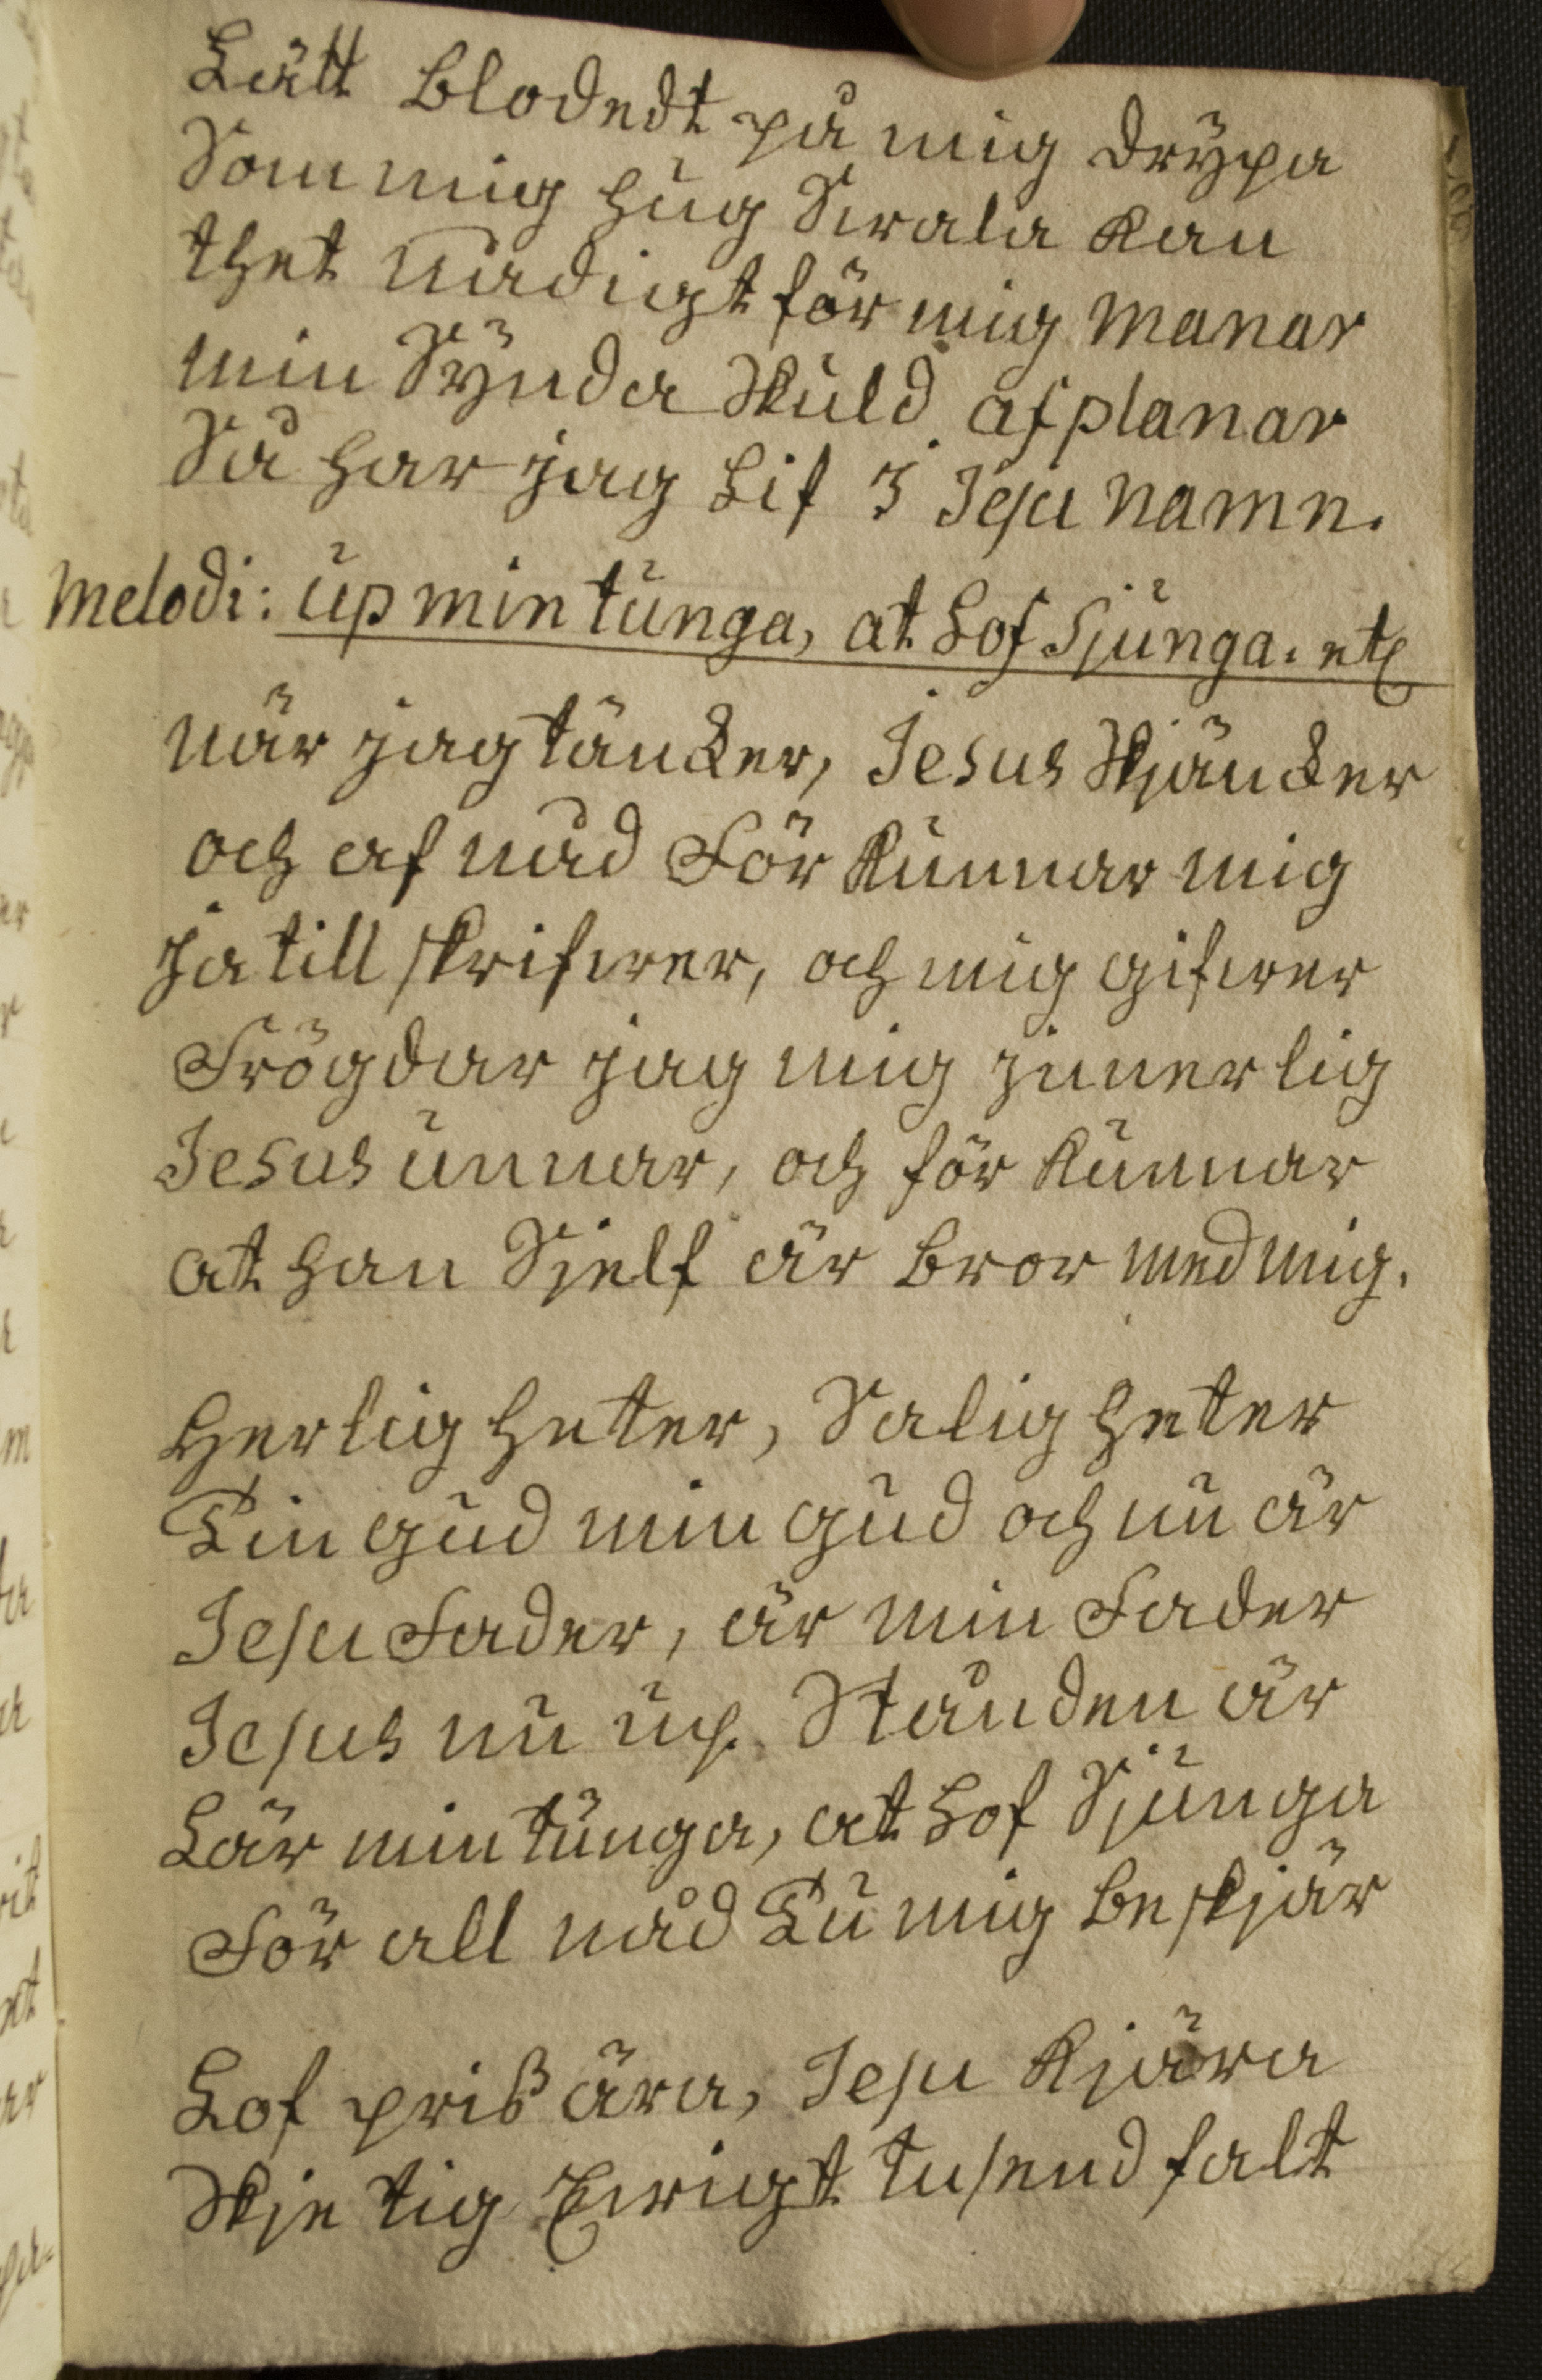 Lätt Blodedt på mig drypa
Som mig hug Swala kan
thet nådigt för mig manar
min Synda Skuld afplanar
Så har jag Lif i Jesu namn.
Melodi: up min tunga, at Lof Sjunga. etc
när jag täncker, Jesus Skjäncker
och af nåd För kunnar mig
ja till skrifwer, och mig gifwer
Frögdar jag mig innerlig
Jesus unnar, och för kunnar
at han Sjelf är Bror med mig.
Herligheter, Saligheter
Din gud min gud och nu är
Jesu Fader, är min Fader
Jesus nu up Stånden är
Lär min tunga, at Lof Sjunga
För all nåd Du mig beskjär
Lof priß ära, Jesu Kjära
Skje tig Ewigt tusend falt